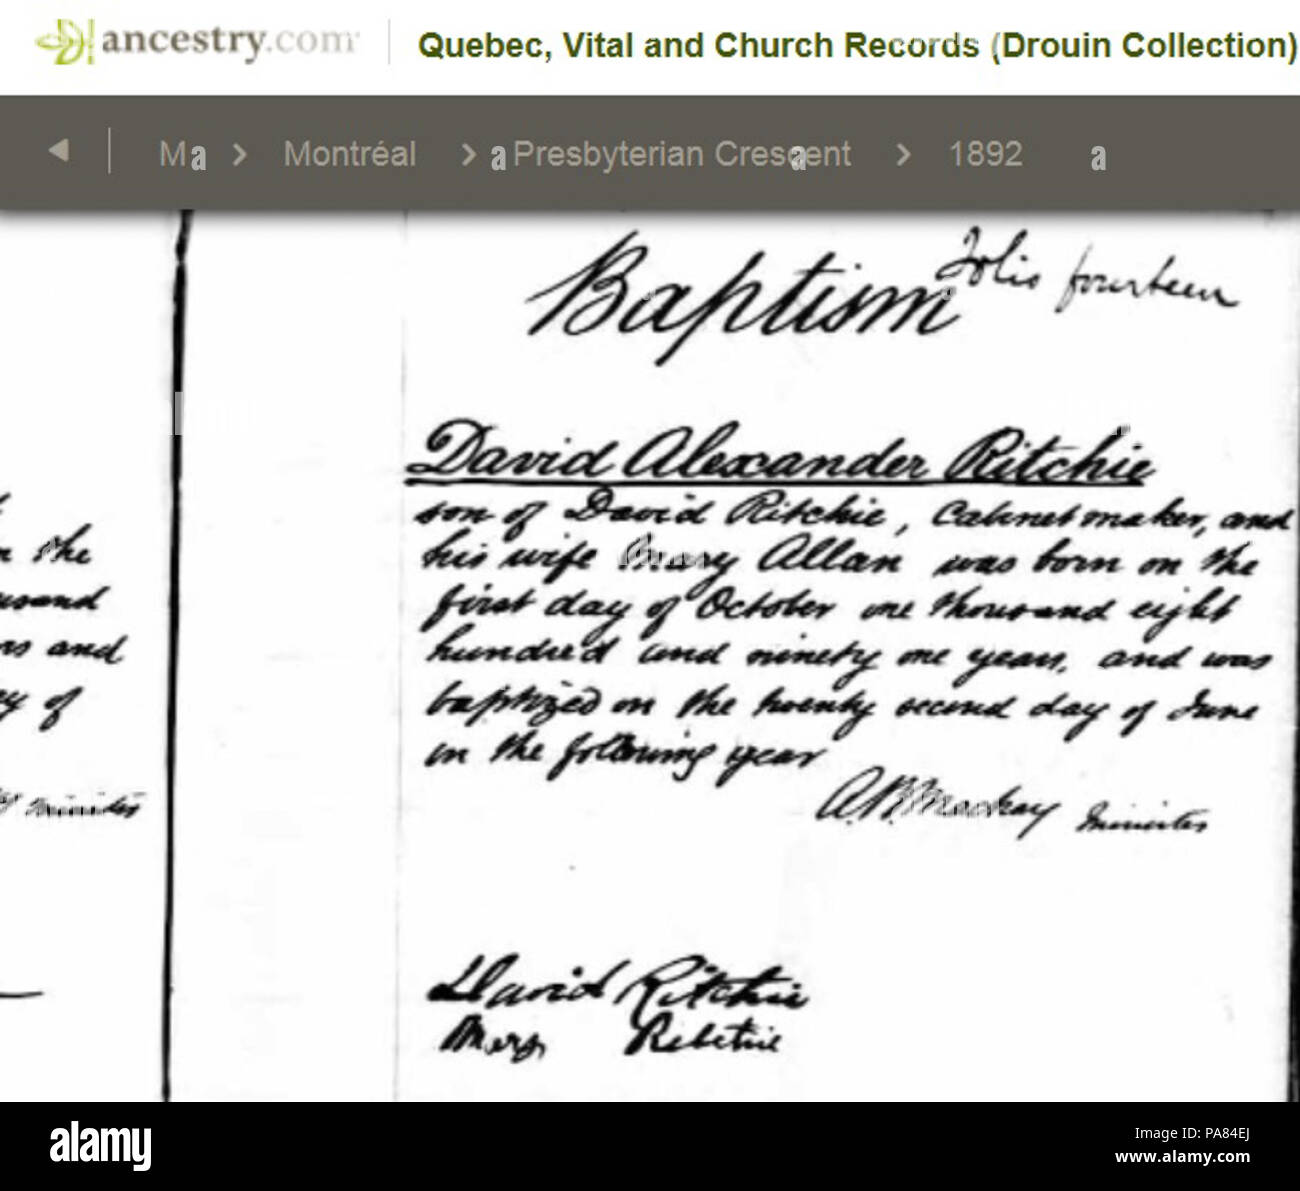 ancestry.com
Quebec, Vital and Church Records (Drouin Collection)
M > Montréal > Presbyterian Crescent > 1892
Folio fourteen
Baptism
David Alexander Ritchie
son of David Ritchie, Cabinet maker, and
his wife Mary Allan was born on the
first day of October one thousand eight
hundred and ninety one years, and was
baptized on the twenty second day of June
in the following year
A. B. Mackay Minister
David Ritchie
Mary Ritchie
the
and
of
minister
alamy
Image ID: PA84EJ
www.alamy.com